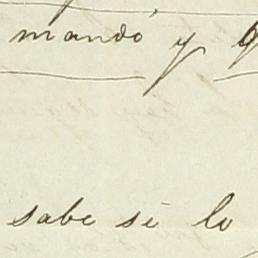 mandó y
sabe si lo